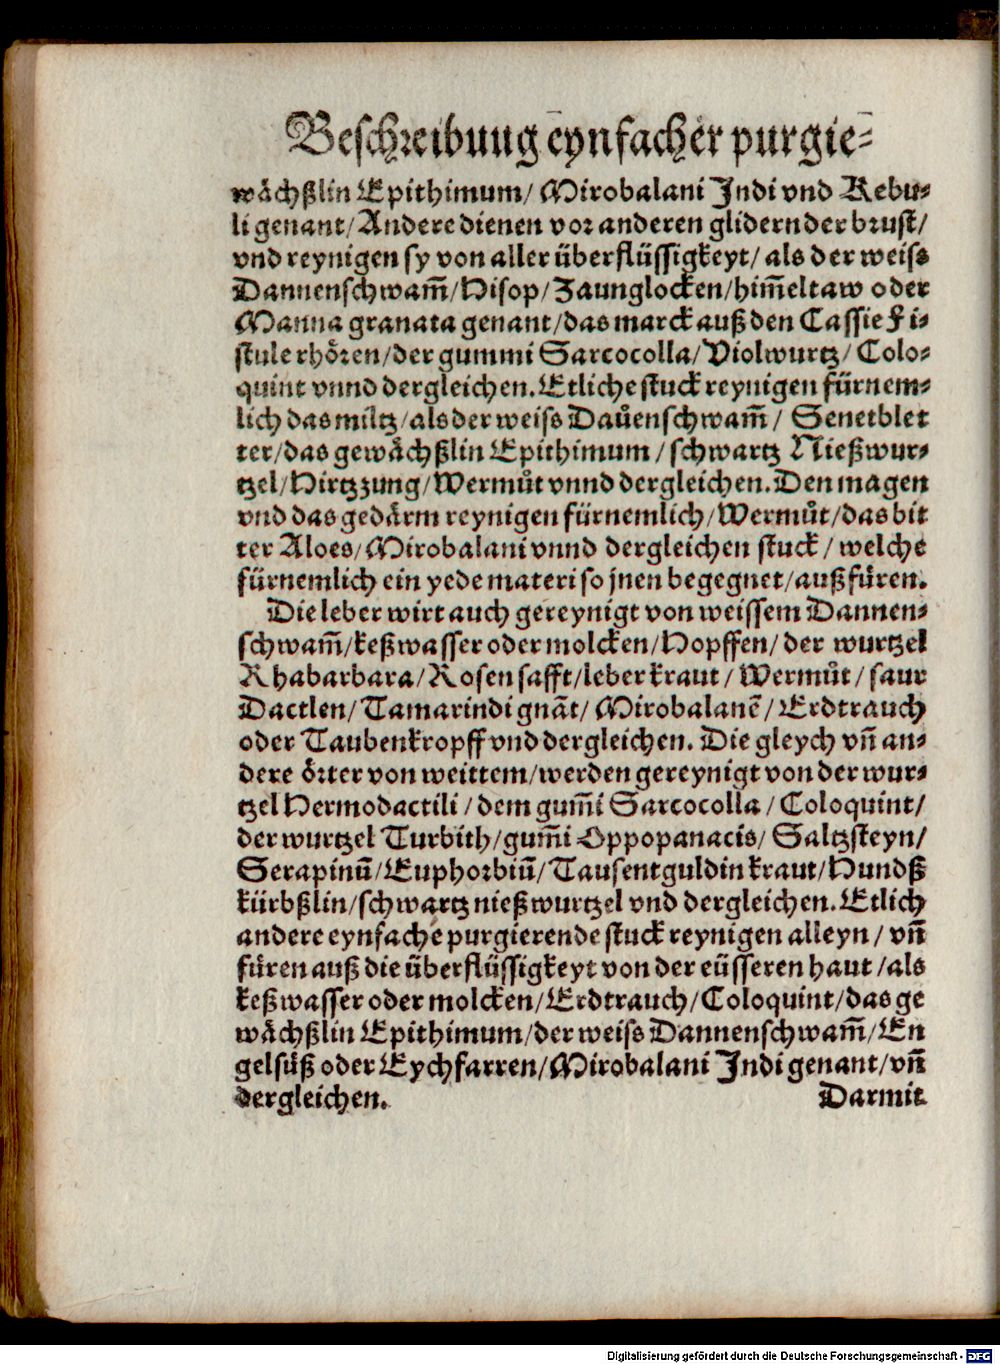 Beschreibung eynfacher purgie-
wächßlin Epithimum/ Mirobalani Indi vnd Kebu-
li genant/ Andere dienen vor anderen glidern der brust/
vnd reynigen sy von aller überflüssigkeyt/ als der weiss
Dannenschwam̃/ Hisop/ Zaunglocken/ him̃eltaw oder
Manna granata genant/ das marck auß den Cassie Fi-
stule rhören/ der gummi Sarcocolla/ Violwurtz/ Colo-
quint vnnd dergleichen. Etliche stuck reynigen fürnem-
lich das miltz/ als der weiss Dañenschwam̃/ Senetblet
ter/ das gewächßlin Epithimum/ schwartz Nießwur-
tzel/ Hirtzzung/ Wermůt vnnd dergleichen. Den magen
vnd das gedärm reynigen fürnemlich/ Wermůt/ das bit
ter Aloes/ Mirobalani vnnd dergleichen stuck/ welche
fürnemlich ein yede materi so jnen begegnet/ außfüren.
Die leber wirt auch gereynigt von weissem Dannen-
schwam̃/ keßwasser oder molcken/ Hopffen/ der wurtzel
Rhabarbara/ Rosensafft/ leberkraut/ Wermůt/ saur
Dactlen/ Tamarindi gnãt/ Mirobalanẽ/ Erdtrauch
oder Taubenkropff vnd dergleichen. Die gleych vñ an-
dere örter von weittem/ werden gereynigt von der wur-
tzel Hermodactili/ dem gum̃i Sarcocolla/ Coloquint/
der wurtzel Turbith/ gum̃i Oppopanacis/ Saltzsteyn/
Serapinũ/ Euphorbiũ/ Tausentguldinkraut/ Hundß
kürbßlin/ schwartz nießwurtzel vnd dergleichen. Etlich
andere eynfache purgierende stuck reynigen alleyn/ vñ
füren auß die überflüssigkeyt von der eüsseren haut/ als
keßwasser oder molcken/ Erdtrauch/ Coloquint/ das ge
wächßlin Epithimum/ der weiss Dannenschwam̃/ En
gelsüß oder Eychfarren/ Mirobalani Indi genant/ vñ
dergleichen. Darmit
Digitalisierung gefördert durch die Deutsche Forschungsgemeinschaft - DFG